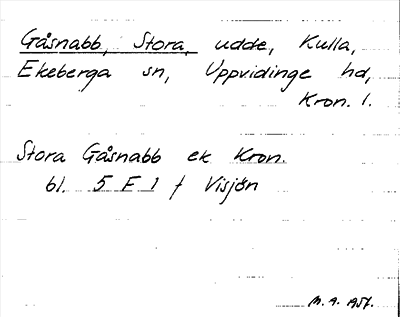 Gåsnabb, Stora, udde, Kulla,
Ekeberga sn, Uppvidinge hd,
Kron. l.
Stora Gåsnabb ek Kron.
bl. 5 F 1 f Visjön
M. A. 1957.